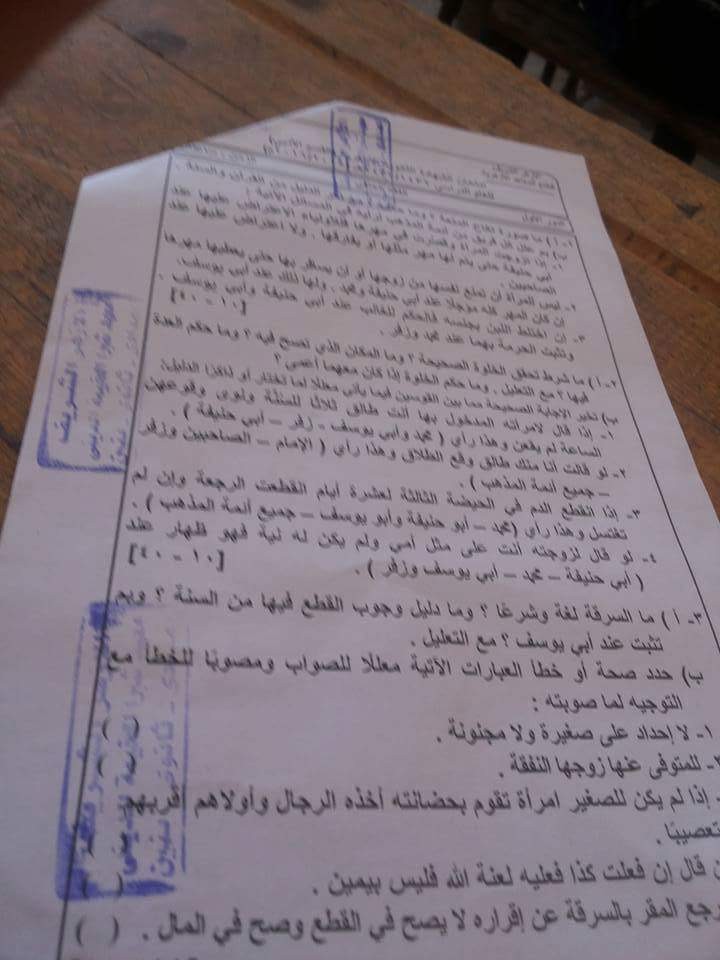 ١- أ) ما صورة نكاح المتعة ؟ وما حكمه ؟ مع الدليل من القرآن والسنة .
ب) بم علل كل فريق من أئمة المذهب لرأيه في المسائل الآتية :
١- إذا تزوجت المرأة وقصرت في مهرها فللأولياء الاعتراض عليها عند
أبي حنيفة حتى يتم لها مهر مثلها أو يفارقها . ولا اعتراض عليها عند
الصاحبين .
٢- ليس للمرأة أن تمنع نفسها من زوجها أو أن يسافر بها حتى يعطيها مهرها
إن كان المهر كله مؤجلا عند أبي حنيفة ومحمد . ولها ذلك عند أبي يوسف .
٣- إن اختلط اللبن بجنسه فالحكم للغالب عند أبي حنيفة وأبي يوسف .
وتثبت الحرمة بهما عند محمد وزفر .
[١٠ - ٤٠]
٢- أ) ما شرط تحقق الخلوة الصحيحة ؟ وما المكان الذي تصح فيه ؟ وما حكم العدة
فيها ؟ مع التعليل . وما حكم الخلوة إذا كان معهما أعمى ؟
ب) تخير الإجابة الصحيحة مما بين القوسين فيما يأتي معللا لما تختار أو ذاكرا الدليل:
١- إذا قال لامرأته المدخول بها أنت طالق ثلاثا للسنة ونوى وقوعهن
الساعة لم يقعن وهذا رأي ( محمد وأبي يوسف - زفر - أبي حنيفة ) .
٢- لو قالت أنا منك طالق وقع الطلاق وهذا رأي ( الإمام - الصاحبين وزفر
- جميع أئمة المذهب ) .
٣- إذا انقطع الدم في الحيضة الثالثة لعشرة أيام انقطعت الرجعة وإن لم
تغتسل وهذا رأي (محمد - أبو حنيفة وأبو يوسف - جميع أئمة المذهب) .
٤- لو قال لزوجته أنت على مثل أمي ولم يكن له نية فهو ظهار عند
( أبي حنيفة - محمد - أبي يوسف وزفر ) .
[١٠ - ٤٠]
٣- أ) ما السرقة لغة وشرعًا ؟ وما دليل وجوب القطع فيها من السنة ؟ وبم
تثبت عند أبي يوسف ؟ مع التعليل .
ب) حدد صحة أو خطأ العبارات الآتية معللًا للصواب ومصوبًا للخطأ مع
التوجيه لما صوبته :
١- لا إحداد على صغيرة ولا مجنونة . ( )
٢- للمتوفى عنها زوجها النفقة . ( )
- إذا لم يكن للصغير امرأة تقوم بحضانته أخذه الرجال وأولاهم أقربهم
تعصيبًا .
ن قال إن فعلت كذا فعليه لعنة الله فليس بيمين . ( )
رجع المقر بالسرقة عن إقراره لا يصح في القطع وصح في المال . ( )
الأزهر الشريف